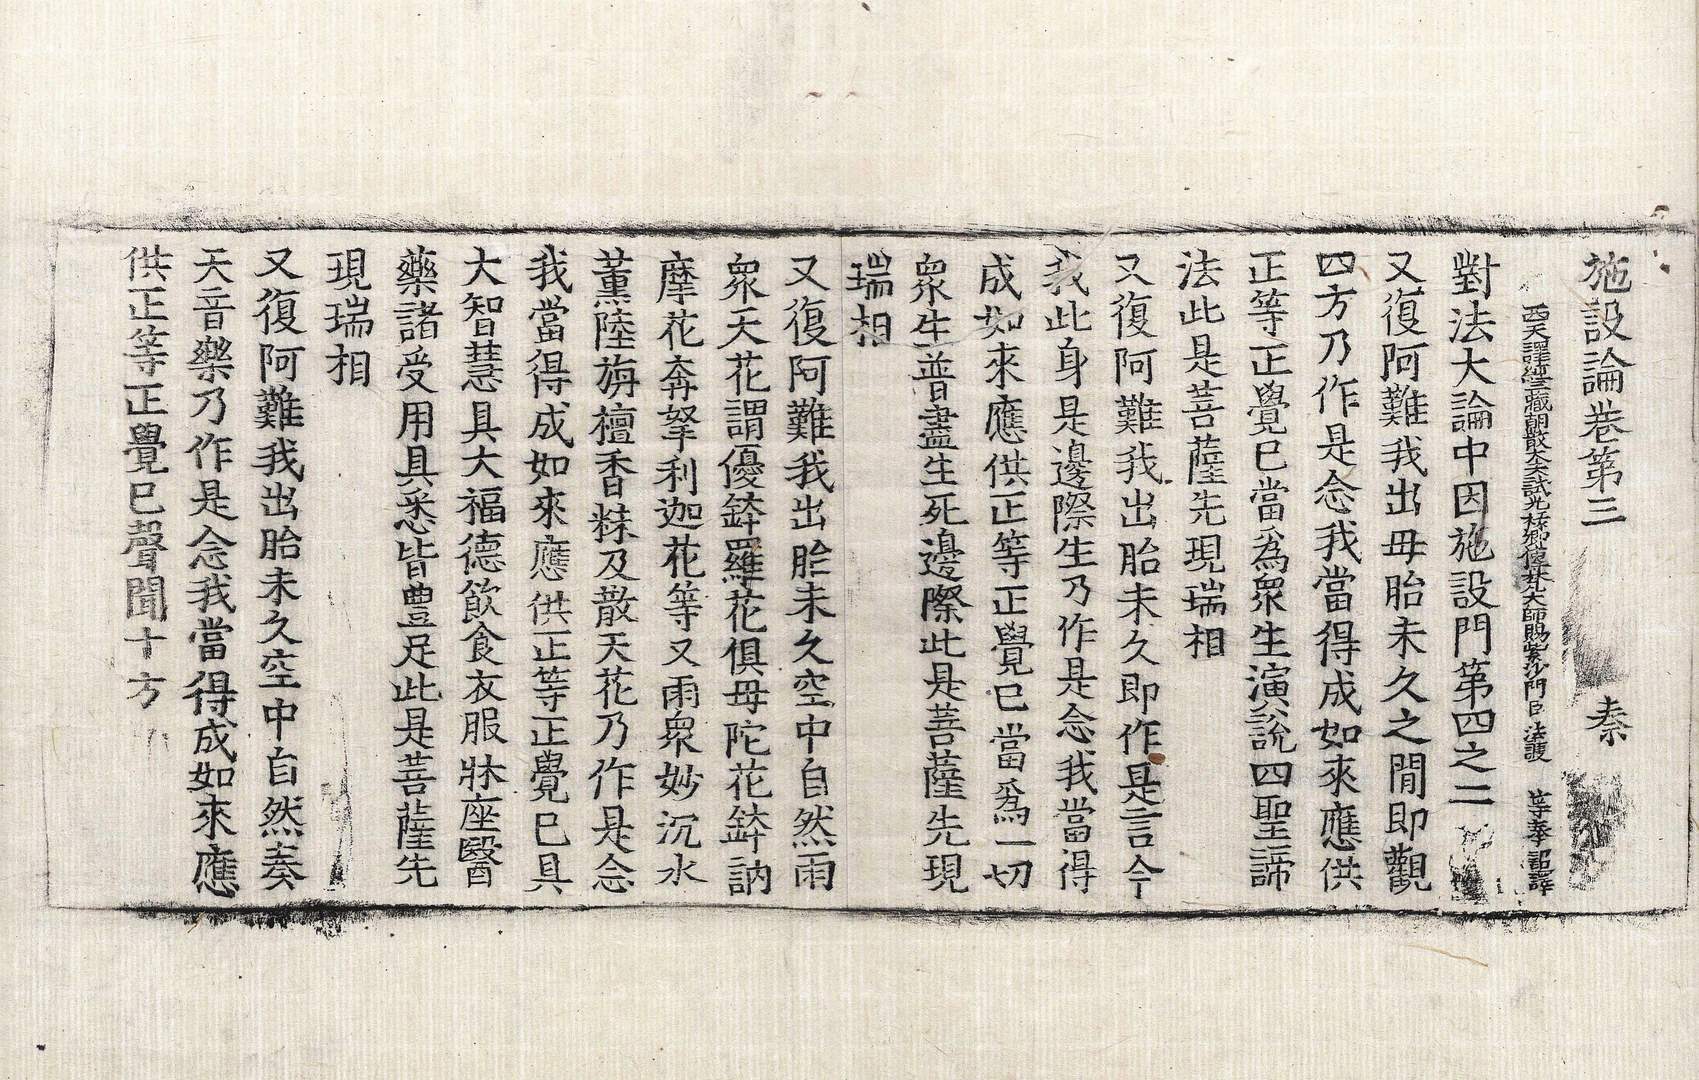 施設論卷第三 秦
西天譯經三藏朝散大夫試光祿卿傳梵大師賜紫沙門臣法護 等奉 詔譯
對法大論中因施設門第四之二
又復阿難我出母胎未久之間即觀
四方乃作是念我當得成如來應供
正等正覺已當爲衆生演說四聖諦
法此是菩薩先現瑞相
又復阿難我出胎未久即作是言今
我此身是邊際生乃作是念我當得
成如來應供正等正覺已當爲一切
衆生普盡生死邊際此是菩薩先現
瑞相
又復阿難我出胎未久空中自然雨
衆天花謂優鉢羅花俱母陀花鉢訥
摩花奔拏利迦花等又雨衆妙沉水
薰陸旃檀香粖及散天花乃作是念
我當得成如來應供正等正覺已具
大智慧具大福德飲食衣服牀座醫
藥諸受用具悉皆豐足此是菩薩先
現瑞相
又復阿難我出胎未久空中自然奏
天音樂乃作是念我當得成如來應
供正等正覺已聲聞十方